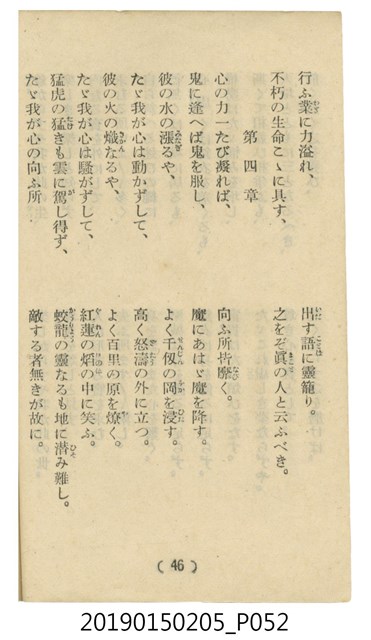 行ふ業に力溢れ、　出す語に靈籠り。
不朽の生命こゝに具す、　之をぞ眞の人と云ふべき。
第四章
心の力一たび凝れば、　向ふ所皆靡く。
鬼に逢へば鬼を服し、　魔にあはゞ魔を降す。
彼の水の漲るや、　よく千仭の岡を浸す。
たゞ我が心は動かずして、　高く怒濤の外に立つ。
彼の火の熾なるや、　よく百里の原を燎く。
たゞ我が心は騷がずして、　紅蓮の焰の中に笑ふ。
猛虎の猛きも雲に駕し得ず、　蛟龍の靈なるも地に潜み難し。
たゞ我が心の向ふ所　敵する者無きが故に。
(46)
20190150205_P052